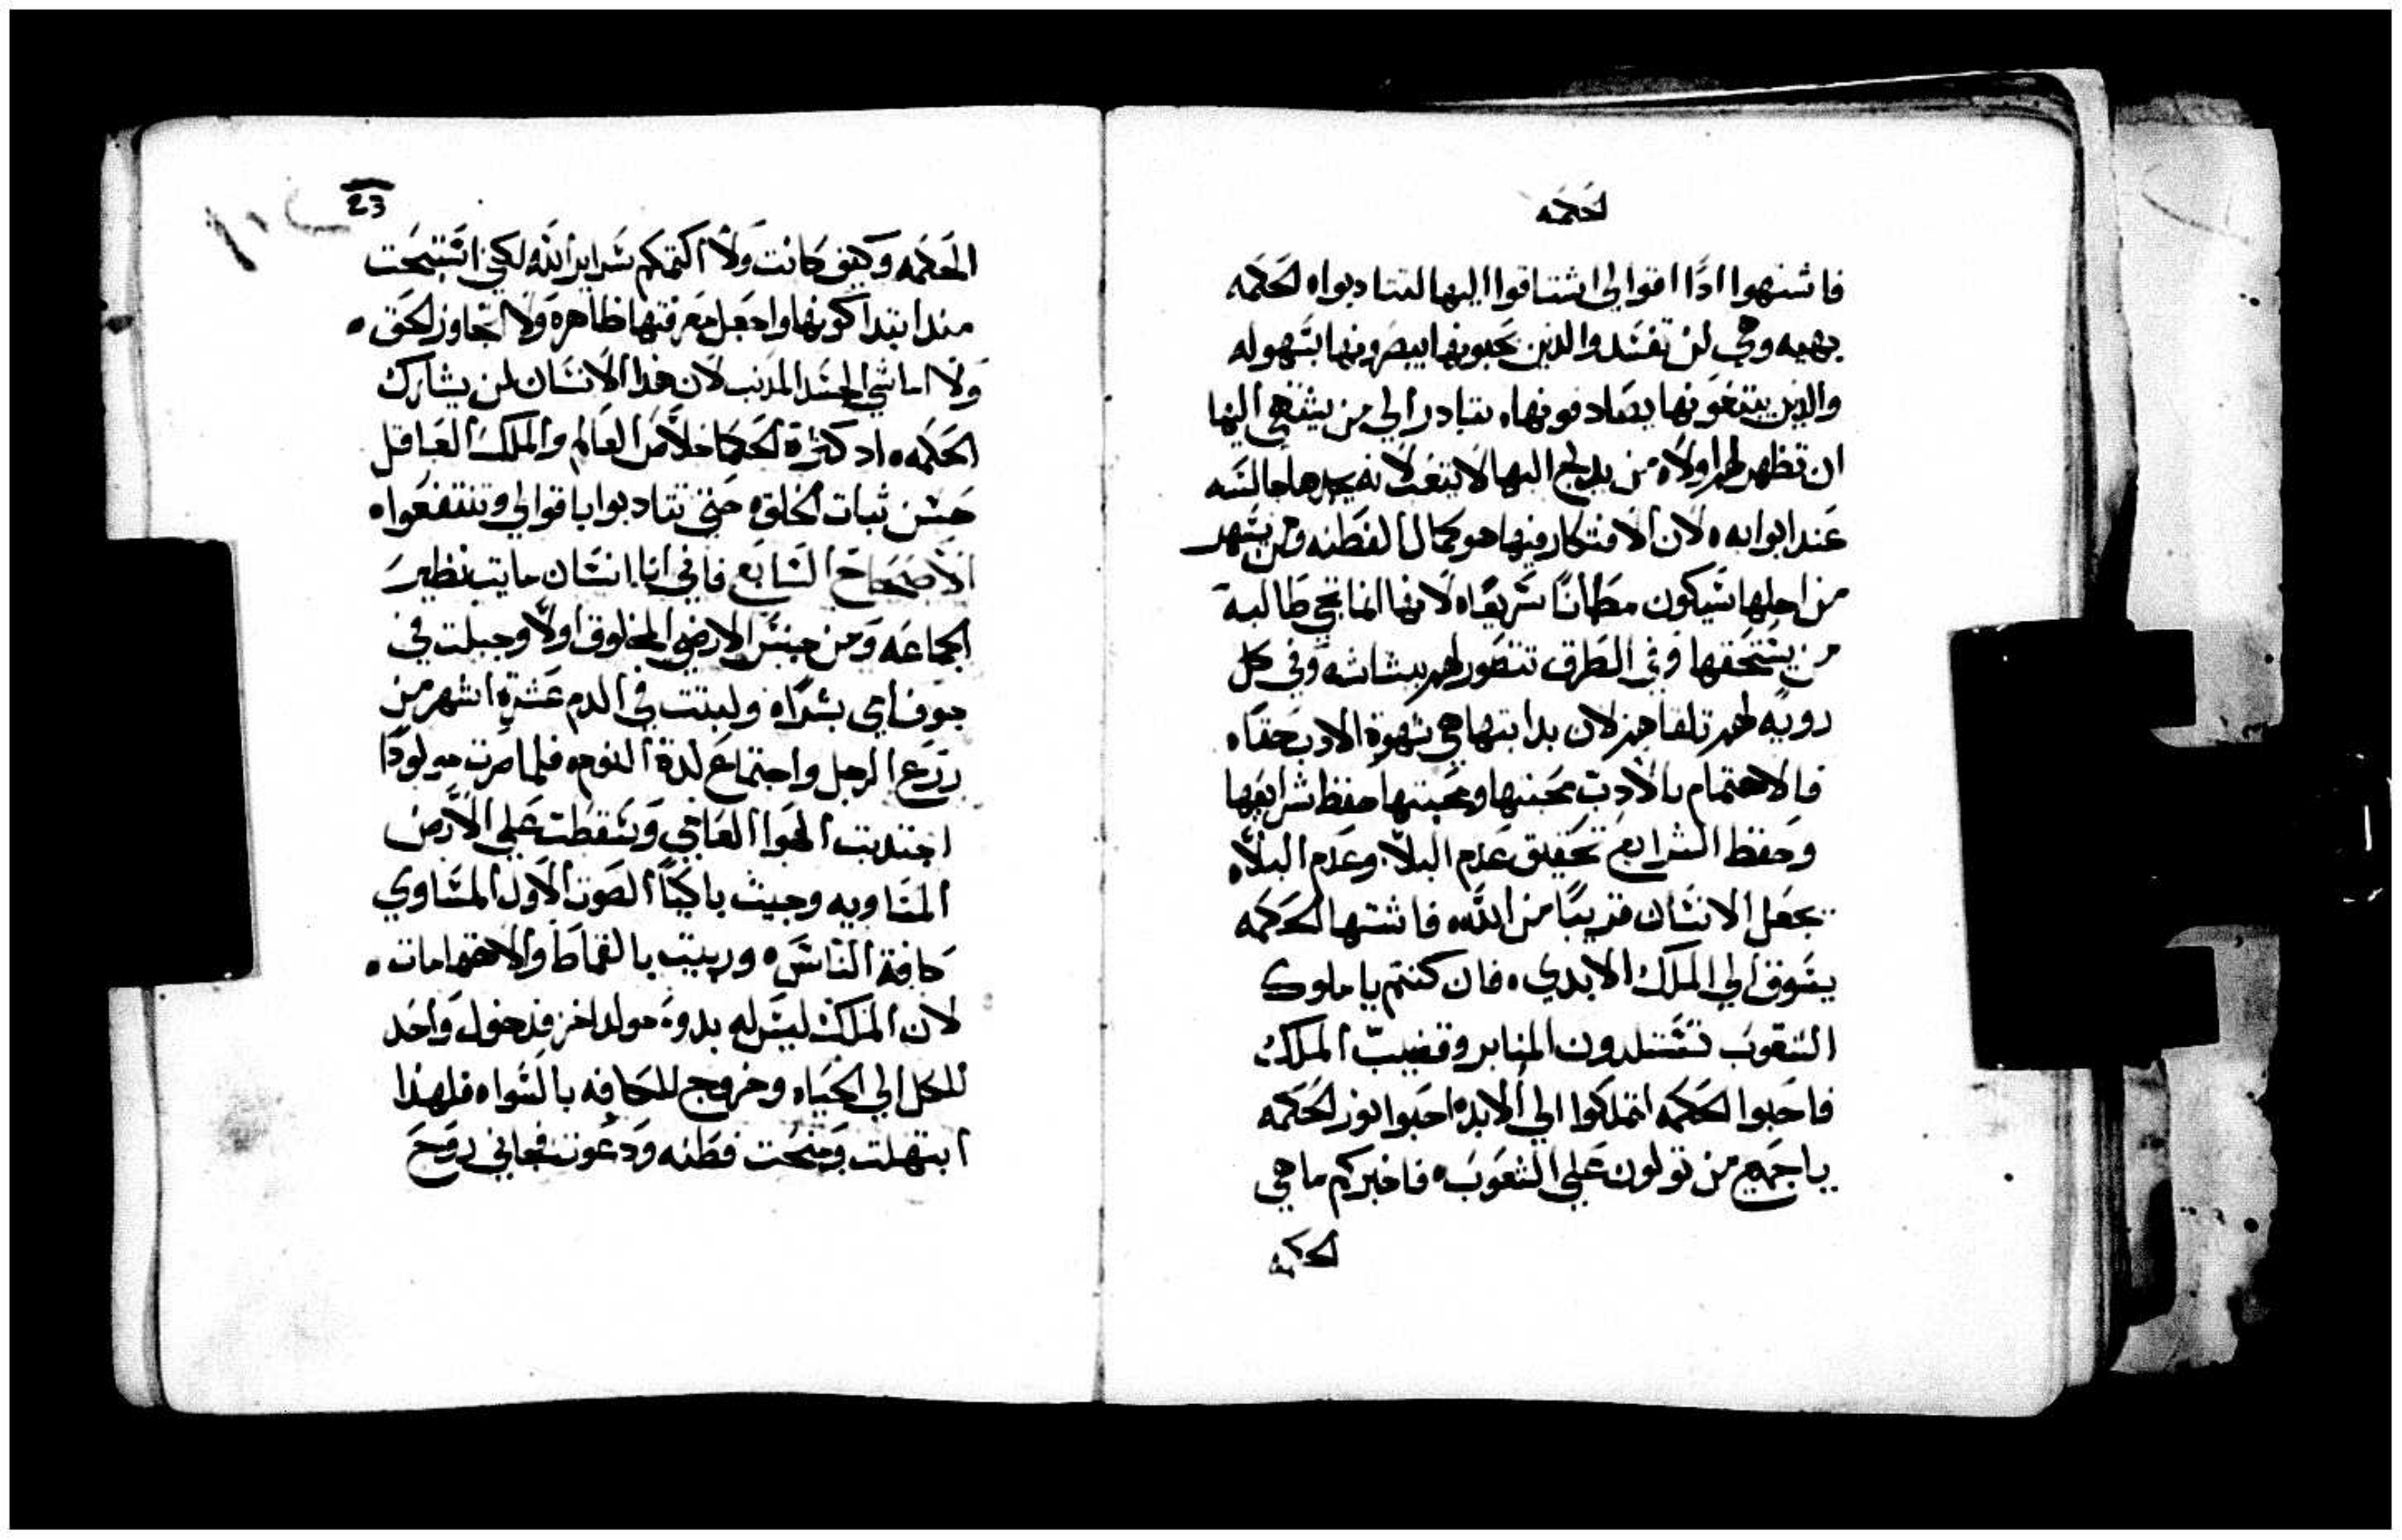 الحكمه
فاشتهوا ادًا اقوالي اشتاقوا اليها لتتادبوا ه الحكمه
بهيه وهي لن تفسد والذين يحبونها يبصرونها بسهوله
والذين يبتغونها يصادفونها ه تبادر الي من يشتهي اليها
ان تظهر لهم اولاه من يدلج اليها لا يتعب لانه يجدها جالسه
عند ابوابه ه لان الافتكار فيها هو كمال الفطنه ومن يسهر
من اجلها سيكون مطمانًا سريعًا ه لانها انما تجي طالبة
من يستحقها وفي الطرق تتصور لهم ببشاشه وفي كل
رويه لهم تلقاهم لان بدايتها هي شهوة الادب حقًا ه
فالاهتمام بالادب محبتها ومحبتها حفظ شرايعها
وحفظ الشرايع تحقيق عدم البلاء وعدم البلاه
يجعل الانسان قريبًا من الله ه فاشتها الحكمه
يشوق الي الملك الابدي ه فان كنتم يا ملوك
الشعوب تستلدون المنابر وقضيب الملك
فاحبوا الحكمه لتملكوا الي الابد ه احبوا نور الحكمه
يا جميع من تولون علي الشعوب ه فاخبركم ما هي
الحكمه
23
الحكمه وكيف كانت ولا اكتمكم سراير الله لكني استبحث
مند ابتدا كونها واجعل معرفتها ظاهره ولا اتجاوز الحق ه
ولا اماشي الحسد المدنب لان هذا الانسان لن يشارك
الحكمه ه اد كثرة الحكما خلاص العالم والملك العاقل
حسن ثبات الخلق ه حتي تتادبوا باقوالي وتنتفعوا ه
الاصحاح السابع فاني انا انسان مايت نظير
الجماعه ومن جنس الارضي المخلوق اولًا وجبلت في
جوف امي بشرًا ه ولبتت في الدم عشرة اشهر من
زرع الرجل واجتماع لدة النوم ه فلما صرت مولودًا
اجتدبت الهوا العامي وسقطت علي الارض
المساويه وجيت باكيًا الصوت الاول المساوي
كافة الناس ه وربيت بالقماط والاهتمامات ه
لان الملك ليس له بدوة مولد اخر فدخول واحد
للكل الي الحياه وخروج للكافه بالسواه فلهذا
ابتهلت ومنحت فطنه ودعوت فجاني روح